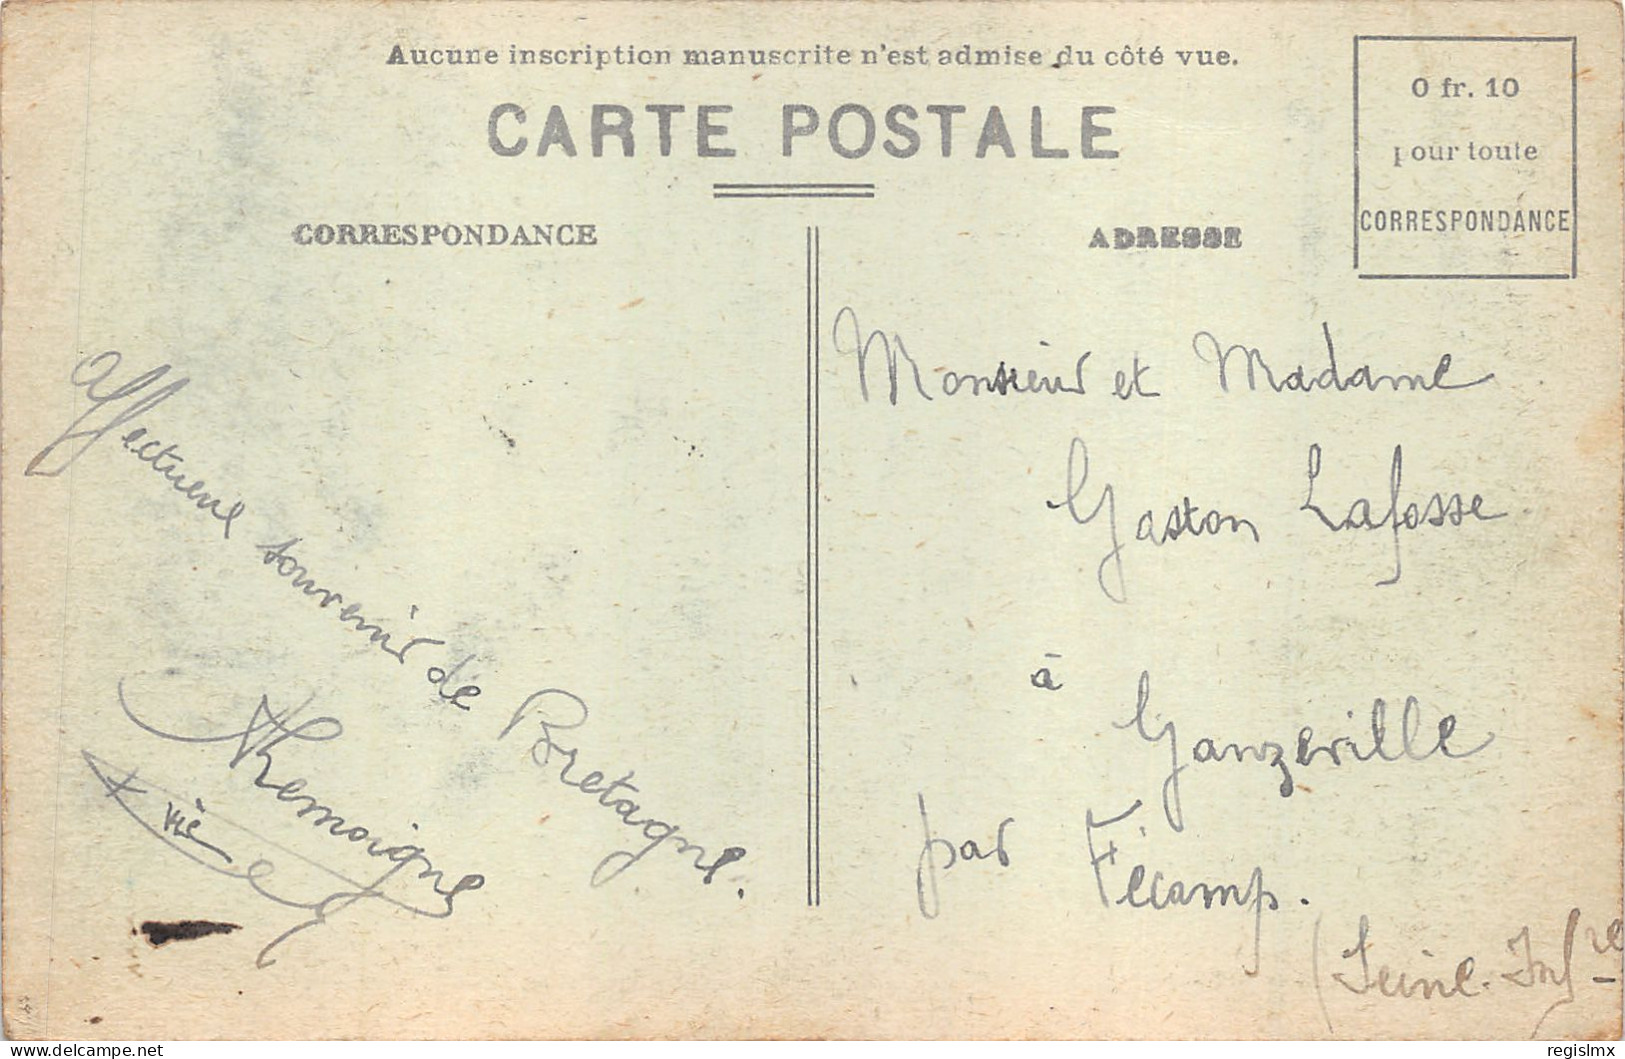 Aucune inscription manuscrite n'est admise du côté vue.
CARTE POSTALE
0 fr. 10
pour toute
CORRESPONDANCE
CORRESPONDANCE
Affectueux souvenir de Bretagne.
ADRESSE
Monsieur et Madame
Gaston Lafosse
à
Ganzeville
par Fécamp.
(Seine-Infre
www.delcampe.net
regislmx